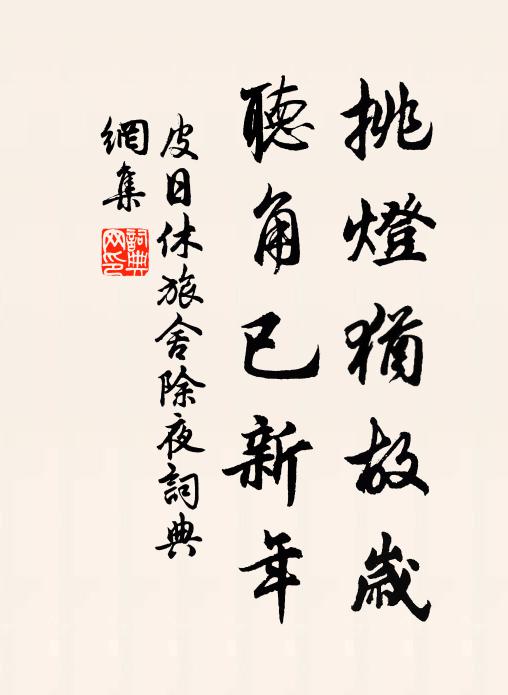 挑燈猶故歲
聽角已新年
皮日休旅舍除夜詞典
網集
詞典
网印